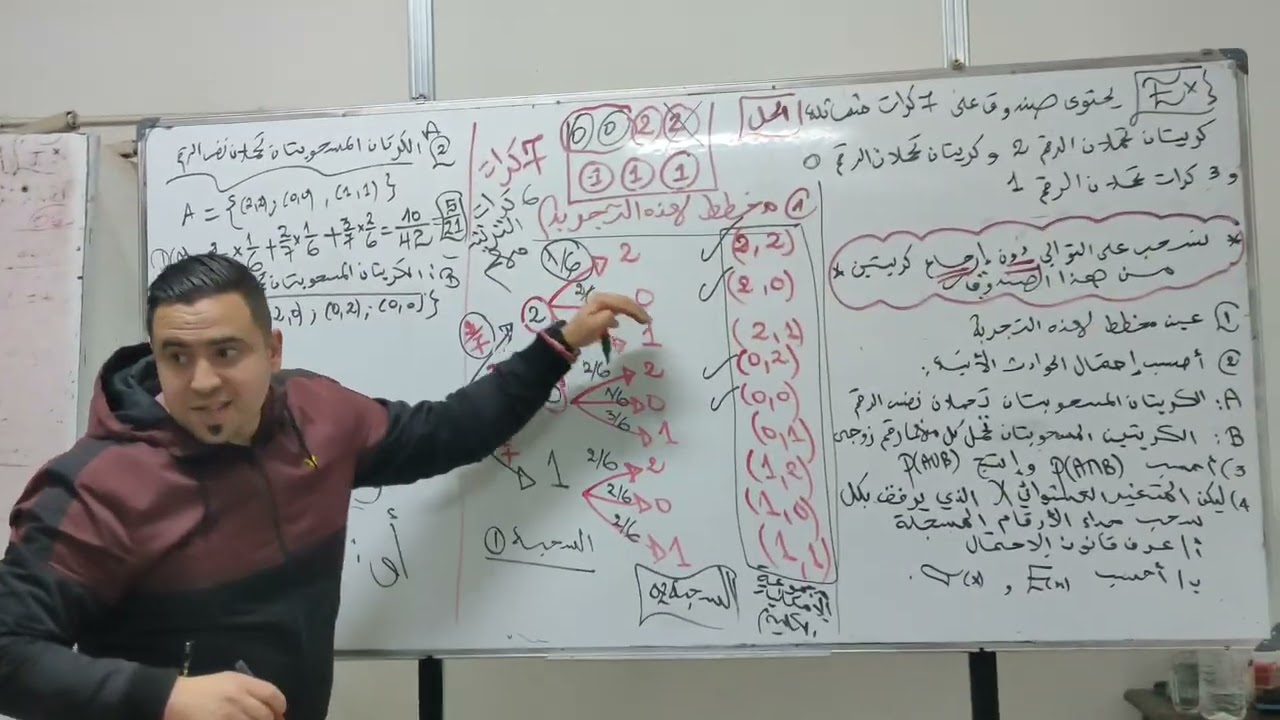 Ex
يحتوي صندوق على 7 كرات متماثلة
كريتان تحملان الرقم 2 و كريتان تحملان الرقم 0
و 3 كرات تحمل الرقم 1
* نسحب على التوالي دون إرجاع كريتين
من هذا الصندوق *
1 عين مخطط لهذه التجربة
2 أحسب إحتمال الحوادث الآتية:
A: الكريتان المسحوبتان تحملان نفس الرقم
B: الكريتين المسحوبتان تحمل كل منهما رقم زوجي
3) أحسب P(A∩B) و إنتج P(A∪B)
4) ليكن المتغير العشوائي X الذي يرفق بكل
سحب جداء الأرقام المسجلة
أ/ عرف قانون الاحتمال
ب/ أحسب E(x) و σ(x).
الحل
0 0 2 2
1 1 1
7 كرات
1 مخطط لهذه التجربة
6 كرات
1/6 2 (2,2)
2/6 0 (2,0)
2 1 (2,1)
2/6 2 (0,2)
1/6 0 (0,0)
3/6 1 (0,1)
1
2/6 2 (1,2)
2/6 0 (1,0)
2/6 1 (1,1)
السحبة 1
السحبة 02
مجموعة
الإمكانيات
2 A الكرتان المسحوبتان تحملان نفس الرقم
A = {(2,2), (0,0), (1,1)}
×1/6 + 2/7 × 1/6 + 3/7 × 2/6 = 10/42 = 5/21
B: الكريتان المسحوبتان
,0), (0,2), (0,0)}